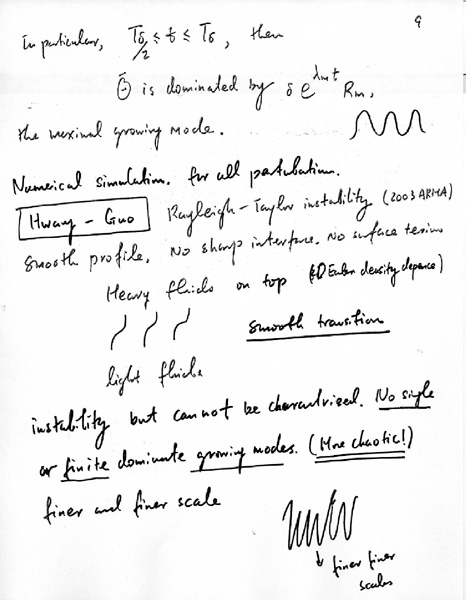 9
In particular, Tδ/2 ≤ t ≤ Tδ, then
Θ̄ is dominated by δ e^{λm t} Rm,
the maximal growing mode.
Numerical simulation. for all pertubation.
Hwang - Guo Rayleigh-Taylor instability (2003 ARMA)
smooth profile. No sharp interface. No surface tension
Heavy fluids on top (Euler density depence)
smooth transition
light fluids
instability but cannot be charactrized. No single
or finite dominate growing modes. (More chaotic!)
finer and finer scale
↓ finer finer
scales